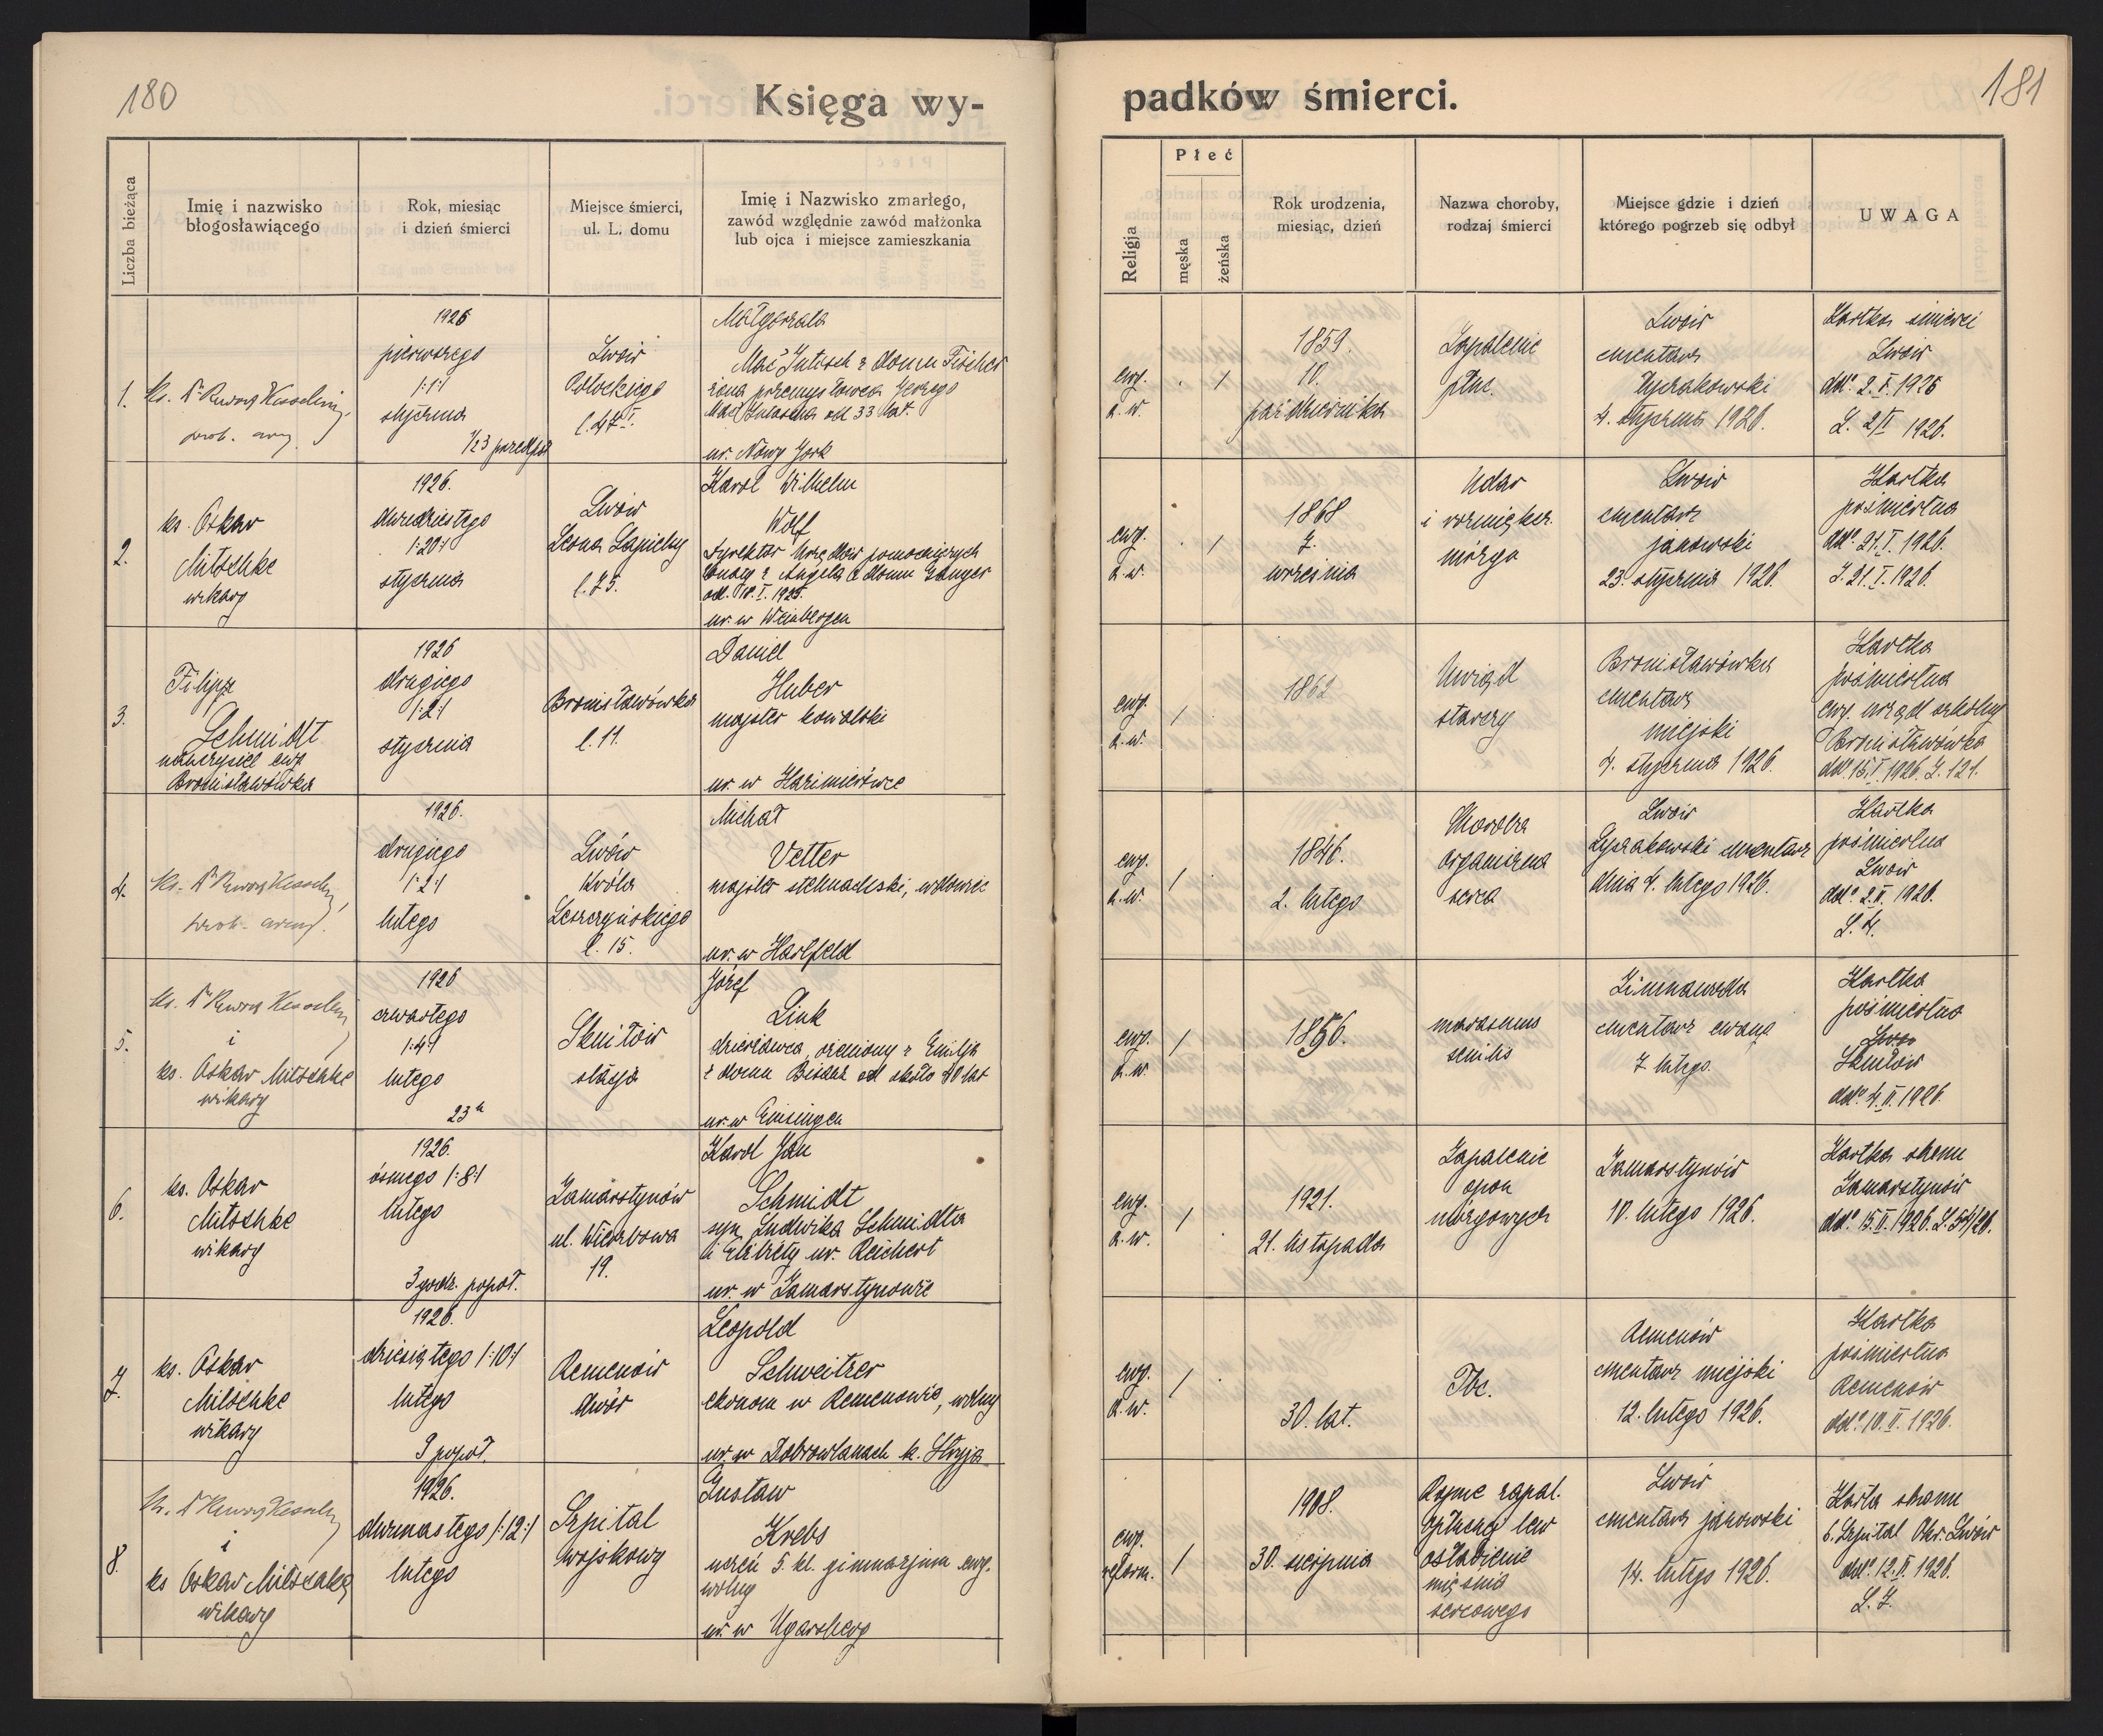 180
Księga wy-
Liczba bieżąca
Imię i nazwisko
błogosławiącego
Rok, miesiąc
i dzień śmierci
Miejsce śmierci,
ul. L. domu
Imię i Nazwisko zmarłego,
zawód względnie zawód małżonka
lub ojca i miejsce zamieszkania
1.
ks. Dr
1926
pierwszego
/:1:/
stycznia
Lwów
Potockiego
l. 47 I.
Małgorzata
z domu Fischer
żona przemysłowca Jerzego
od 33 lat.
ur. Nowy Jork
2.
ks. Oskar
Mitschke
wikary
1926.
dwudziestego
/:20:/
stycznia
Lwów
Leona Sapiehy
l. 75.
Karol Wilhelm
Wolf
dyrektor urzędów pomocniczych
z Angelą z domu
od 18. I. 1925.
ur. w Weinbergen
3.
Filipp
Schmidt
nauczyciel ewg
Bronisławówka
1926
drugiego
/:2:/
stycznia
Bronisławówka
l. 11.
Daniel
Huber
majster kowalski
ur. w Kazimierówce
4.
ks. Dr
1926.
drugiego
/:2:/
lutego
Lwów
Króla
Leszczyńskiego
l. 15.
Michał
Vetter
majster stelmachski, wdowiec
ur. w Hartfeld
5.
ks. Dr
i
ks. Oskar Mitschke
wikary
1926
czwartego
/:4:/
lutego
23 h
Skniłów
stacja
Józef
Link
dzierżawca, ożeniony z Emilją
z domu Bisanz od około 40 lat
ur. w Einsingen
6.
ks. Oskar
Mitschke
wikary
1926.
ósmego /:8:/
lutego
3 godz. popoł.
Zamarstynów
ul. Wierzbowa
19.
Karol Jan
Schmidt
syn Ludwika Schmidta
i Elżbiety ur. Reichert
ur. w Zamarstynowie
7.
ks. Oskar
Mitschke
wikary
1926.
dziesiątego /:10:/
lutego
9 popoł.
Remenów
dwór
Leopold
Schweitzer
ekonom w Remenowie, wolny
ur. w Dobrowlanach k. Stryja
8.
ks. Dr
i
ks Oskar Mitschke
wikary
1926.
dwunastego /:12:/
lutego
Szpital
wojskowy
Gustaw
Krebs
uczeń 5. kl. gimnazjum ewg.
wolny
ur. w Ugartsberg
181
padków śmierci.
Religja
Płeć
męska
żeńska
Rok urodzenia,
miesiąc, dzień
Nazwa choroby,
rodzaj śmierci
Miejsce gdzie i dzień
którego pogrzeb się odbył
UWAGA
ewg.
a. w.
/
1859.
10.
października
Zapalenie
płuc.
Lwów
cmentarz
Łyczakowski
4. stycznia 1926.
Kartka śmierci
Lwów
dd. 2. I. 1926
L. 2/I 1926.
ewg.
a. w.
/
1868
7.
września
Udar
i rozmiękcz.
mózgu
Lwów
cmentarz
janowski
23. stycznia 1926.
Kartka
pośmiertna
dd. 21. I. 1926.
L. 21. I. 1926.
ewg.
a. w.
/
1862
Uwiąd
starczy
Bronisławówka
cmentarz
miejski
4. stycznia 1926.
Kartka
pośmiertna
ewg. urząd szkolny
Bronisławówka
dd. 15. I. 1926. L. 121.
ewg.
a. w.
/
1846.
2. lutego
Choroba
organiczna
serca
Lwów
Łyczakowski cmentarz
dnia 4. lutego 1926.
Kartka
pośmiertna
Lwów
dd. 2. II. 1926.
L. 4.
ewg.
a. w.
/
1856.
marasmus
senilis
Zimnawoda
cmentarz ewang
7. lutego.
Kartka
pośmiertna
Skniłów
dd. 4. II. 1926.
ewg.
a. w.
/
1921.
21. listopada
Zapalenie
opon
mózgowych
Zamarstynów
10. lutego 1926.
Kartka
Zamarstynów
dd. 15. II. 1926. L. 54/26.
ewg.
a. w.
/
30. lat.
Tbc.
Remenów
cmentarz miejski
12. lutego 1926.
Kartka
pośmiertna
Remenów
dd. 10. II. 1926.
ewg.
reform.
/
1908.
30. sierpnia
Ropne zapal.
opłucnej lew
osłabienie
mięśnia
sercowego
Lwów
cmentarz janowski
14. lutego 1926.
Karta
6. Szpital Okr. Lwów
dd. 12. II. 1926.
L. 7.